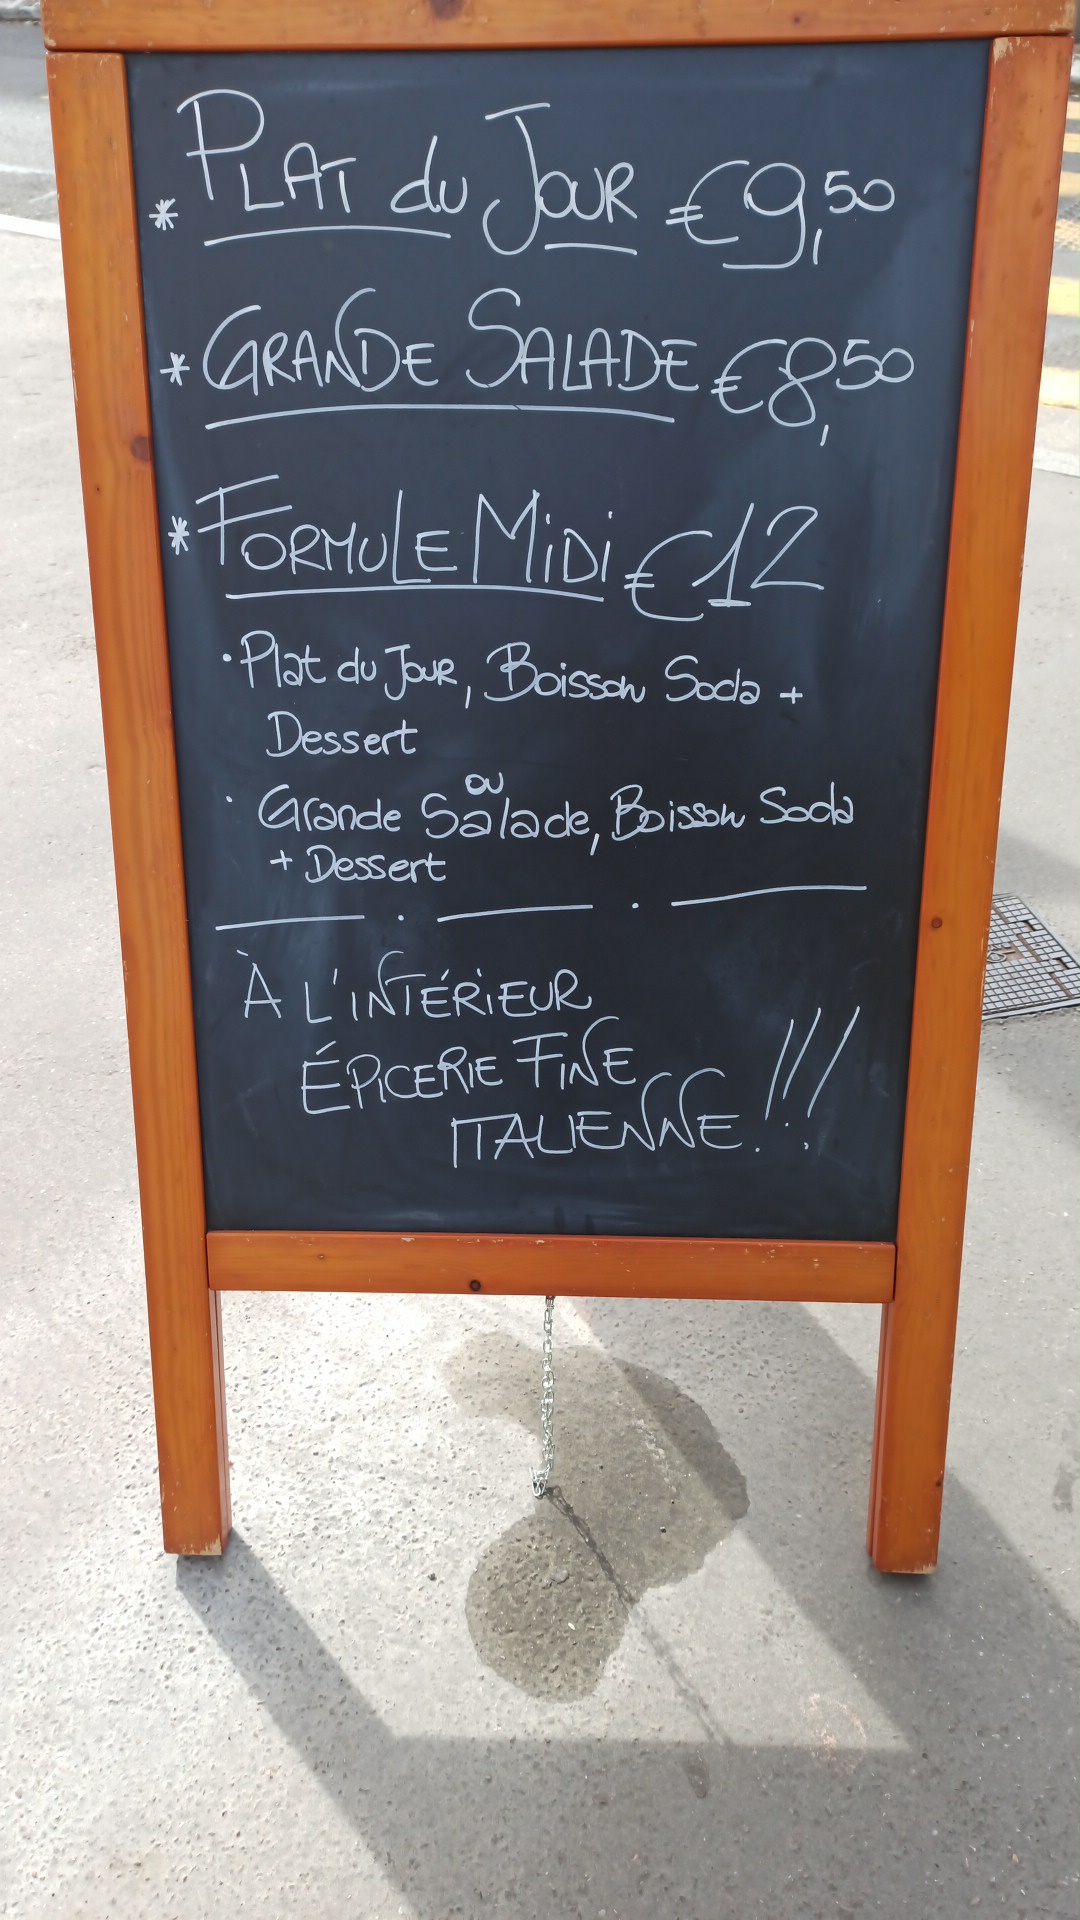 * PLAT du JOUR €9,50
* GRANDE SALADE €8,50
* FORMULE MiDi €12
· Plat du Jour, Boisson Soda +
Dessert
ou
· Grande Salade, Boisson Soda
+ Dessert
À L'INTÉRiEUR
ÉPICERIE FINE
ITALIENNE!!!